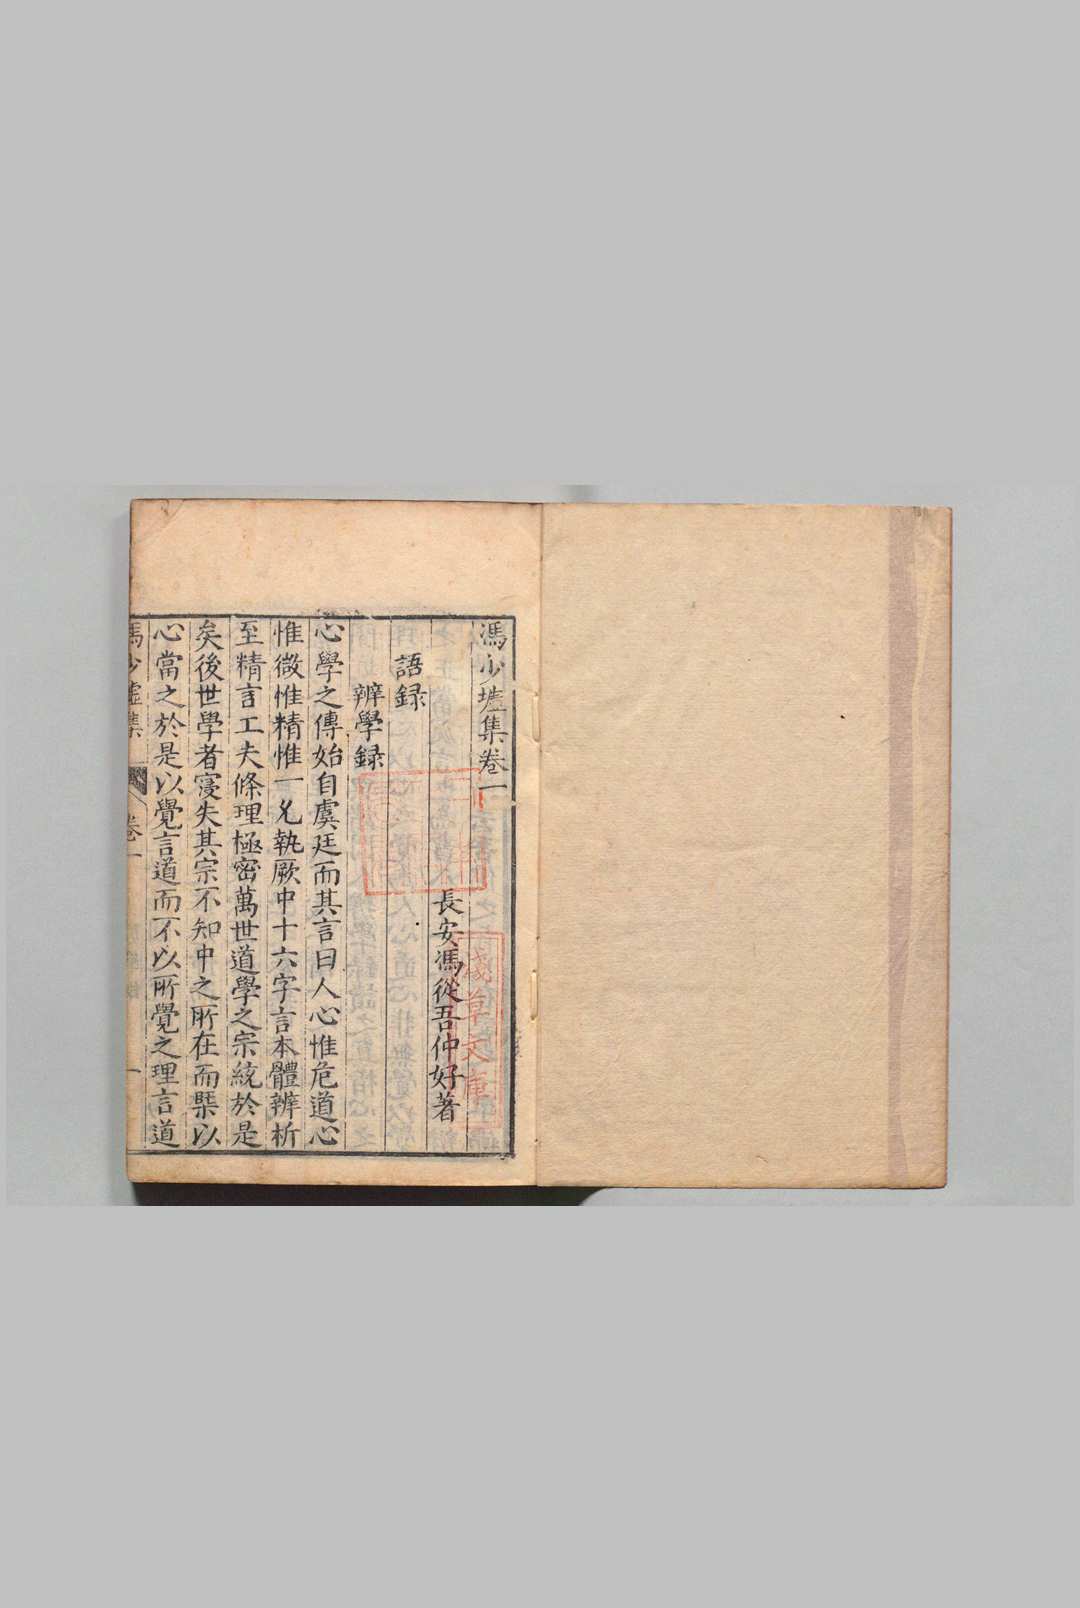 馮少墟集卷一
長安馮從吾仲好著
語録
辨學録
心學之傳始自虞廷而其言曰人心惟危道心
惟微惟精惟一允執厥中十六字言本體辨析
至精言工夫條理極密萬世道學之宗統於是
矣後世學者寖失其宗不知中之所在而槩以
心當之於是以覺言道而不以所覺之理言道
馮少墟集
卷一
一
草文庫